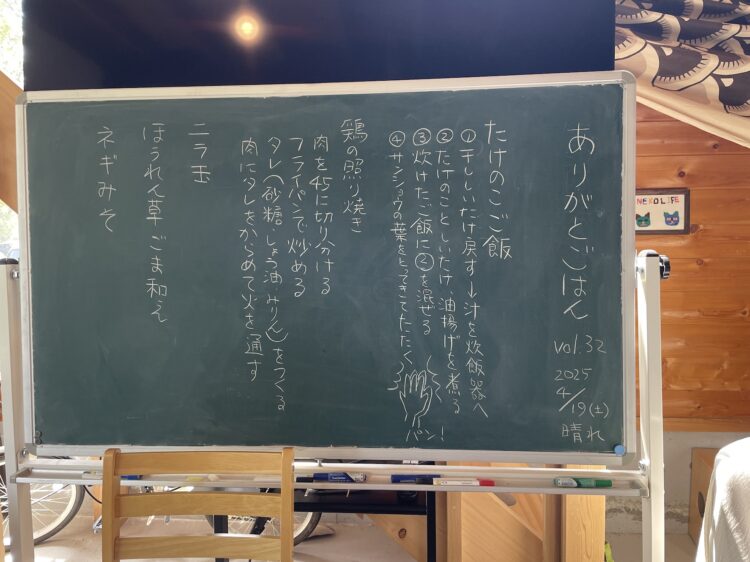 ありがとごはん
vol.32
2025
4/19(土)
晴れ
たけのこご飯
①干ししいたけ戻す→汁を炊飯器へ
②たけのことしいたけ、油揚げを煮る
③炊けたご飯に②を混ぜる
④サンショウの葉をとってきてたたく
パン!
鶏の照り焼き
肉を45に切り分ける
フライパンで炒める
タレ(砂糖、しょう油、みりん)をつくる。
肉にタレをからめて火を通す
ニラ玉
ほうれん草ごま和え
ネギみそ
NEKO LIFE